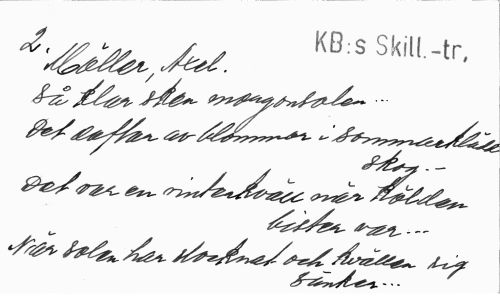 2.
KB:s Skill.-tr,
Möller, Axel.
Så klar sken morgonsolen...
Det doftar av blommor i sommarklädd
skog.-
Det var en vinterkväll när kölden
bister var...
När solen har slocknat och kvällen sig
sänker...